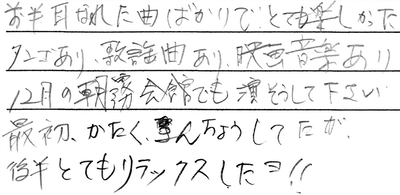 お耳なれた曲ばかりで とても楽しかった
タンゴあり、歌謡曲あり、映画音楽あり
12月の朝霧会館でも 演そうして下さい
最初、かたく、きんちょうしてたが、
後半とてもリラックスしたヨ!!